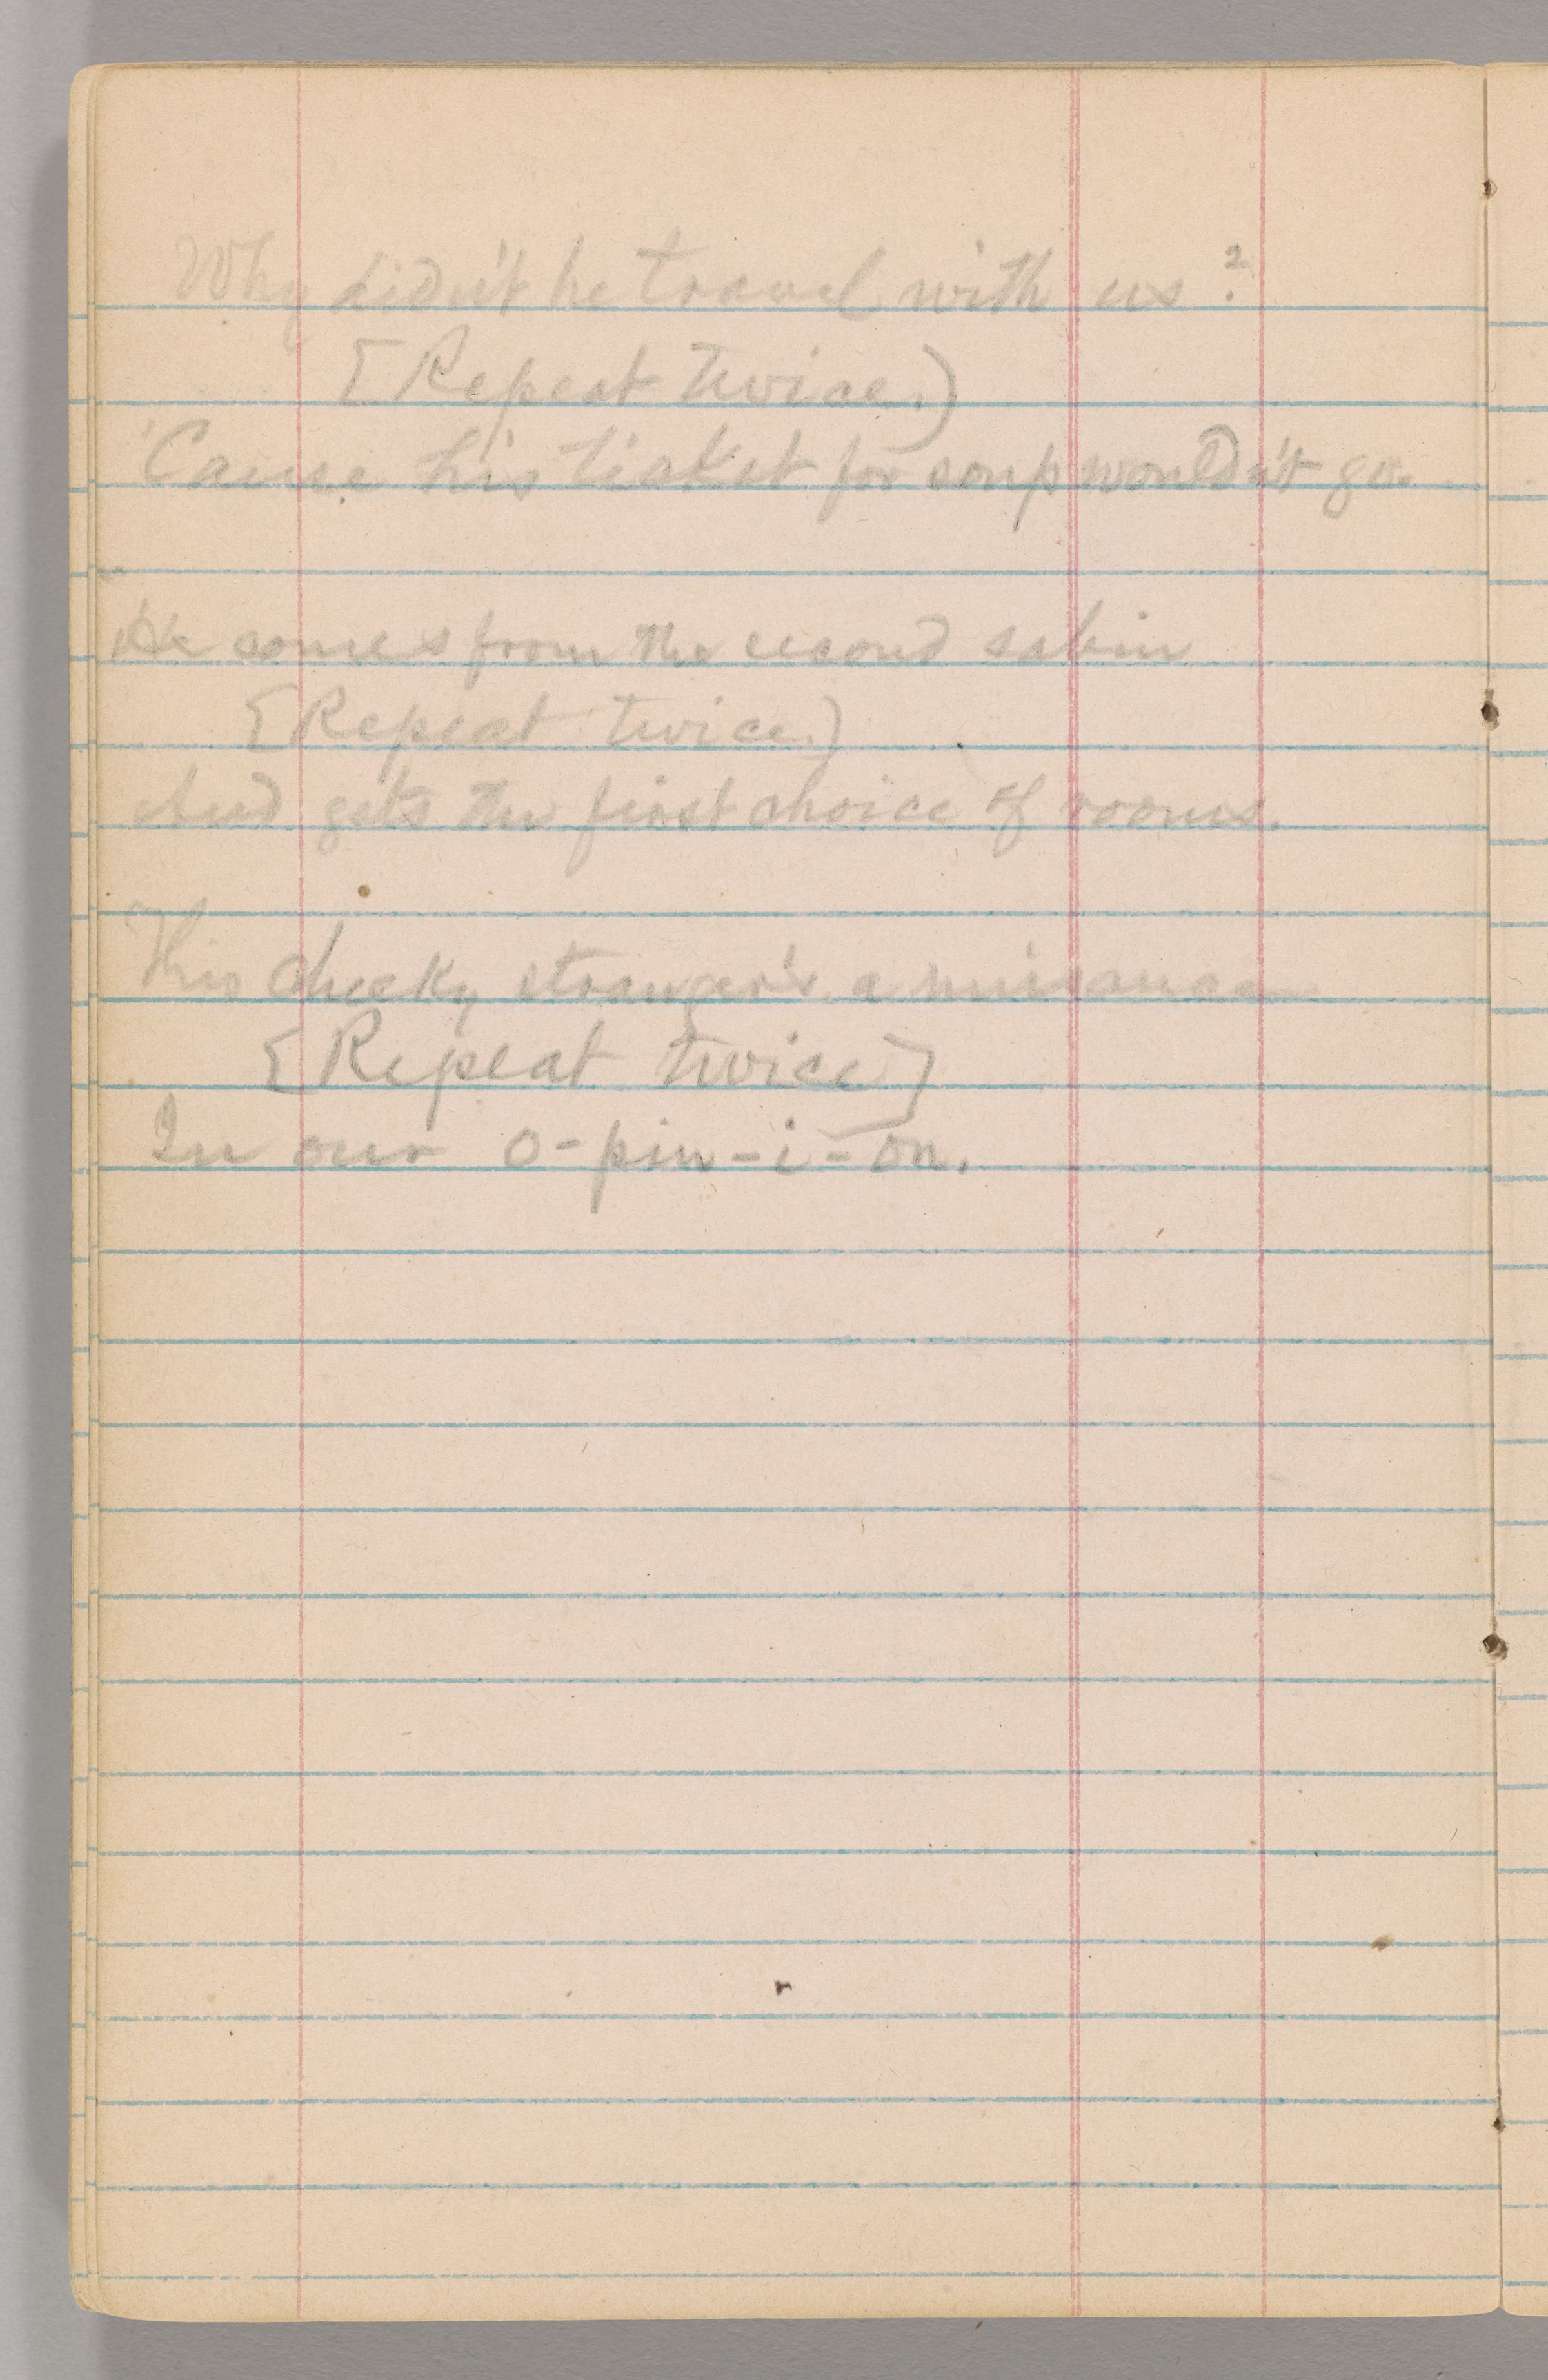 Why didn't he travel with us?
[Repeat twice.)
'Cause his ticket for soup wouldn't go.
He comes from the second cabin
[Repeat twice.)
And gets the first choice of rooms.
This cheeky stranger's a nuisance
[Repeat twice)
In our o-pin-i-on.